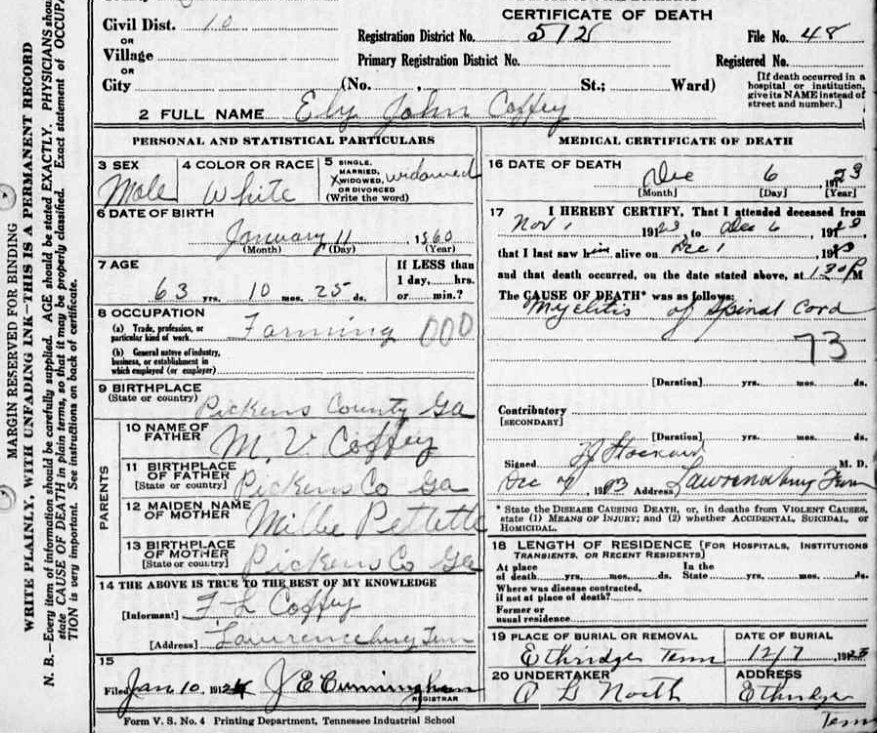 CERTIFICATE OF DEATH
Civil Dist. 10
OR
Village
OR
City
Registration District No. 512
File No. 48
Primary Registration District No.
Registered No.
(No. , St.; Ward)
[If death occurred in a hospital or institution, give its NAME instead of street and number.]
2 FULL NAME Ely John Coffey
PERSONAL AND STATISTICAL PARTICULARS
3 SEX
Male
4 COLOR OR RACE
White
5 SINGLE,
MARRIED,
X WIDOWED,
OR DIVORCED
(Write the word)
widowed
6 DATE OF BIRTH
January 11, 1860
(Month) (Day) (Year)
7 AGE
63 yrs. 10 mos. 25 ds.
If LESS than
1 day, hrs.
or min.?
8 OCCUPATION
(a) Trade, profession, or
particular kind of work
Farming 000
(b) General nature of industry,
business, or establishment in
which employed (or employer)
9 BIRTHPLACE
(State or country)
Pickens County Ga
PARENTS
10 NAME OF
FATHER
M. V. Coffey
11 BIRTHPLACE
OF FATHER
[State or country]
Pickens Co Ga
12 MAIDEN NAME
OF MOTHER
Millie Pettette
13 BIRTHPLACE
OF MOTHER
[State or country]
Pickens Co Ga
14 THE ABOVE IS TRUE TO THE BEST OF MY KNOWLEDGE
[Informant] F L Coffey
[Address] Lawrenceburg Tenn
15
Filed Jan 10, 1924 J E Cunningham
REGISTRAR
MEDICAL CERTIFICATE OF DEATH
16 DATE OF DEATH
Dec 6, 1923
[Month] [Day] [Year]
17 I HEREBY CERTIFY, That I attended deceased from
Nov 1 1923 to Dec 6, 1923
that I last saw him alive on Dec 1, 1923
and that death occurred, on the date stated above, at 130 P M
The CAUSE OF DEATH* was as follows:
Myelitis of Spinal Cord
73
[Duration] yrs. mos. ds.
Contributory
[SECONDARY]
[Duration] yrs. mos. ds.
Signed M. D.
Dec 1923 Address Lawrenceburg Tenn
* State the DISEASE CAUSING DEATH, or, in deaths from VIOLENT CAUSES,
state (1) MEANS OF INJURY; and (2) whether ACCIDENTAL, SUICIDAL, or
HOMICIDAL.
18 LENGTH OF RESIDENCE [FOR HOSPITALS, INSTITUTIONS
TRANSIENTS, OR RECENT RESIDENTS]
At place
of death yrs. mos. ds.
In the
State yrs. mos. ds.
Where was disease contracted,
if not at place of death?
Former or
usual residence
19 PLACE OF BURIAL OR REMOVAL
Ethridge Tenn
DATE OF BURIAL
12/7, 1923
20 UNDERTAKER
North
ADDRESS
Ethridge
Tenn
Form V. S. No. 4 Printing Department, Tennessee Industrial School
MARGIN RESERVED FOR BINDING
WRITE PLAINLY, WITH UNFADING INK—THIS IS A PERMANENT RECORD
N. B.—Every item of information should be carefully supplied. AGE should be stated EXACTLY. PHYSICIANS shou
state CAUSE OF DEATH in plain terms, so that it may be properly classified. Exact statement of OCCUPA
TION is very important. See instructions on back of certificate.